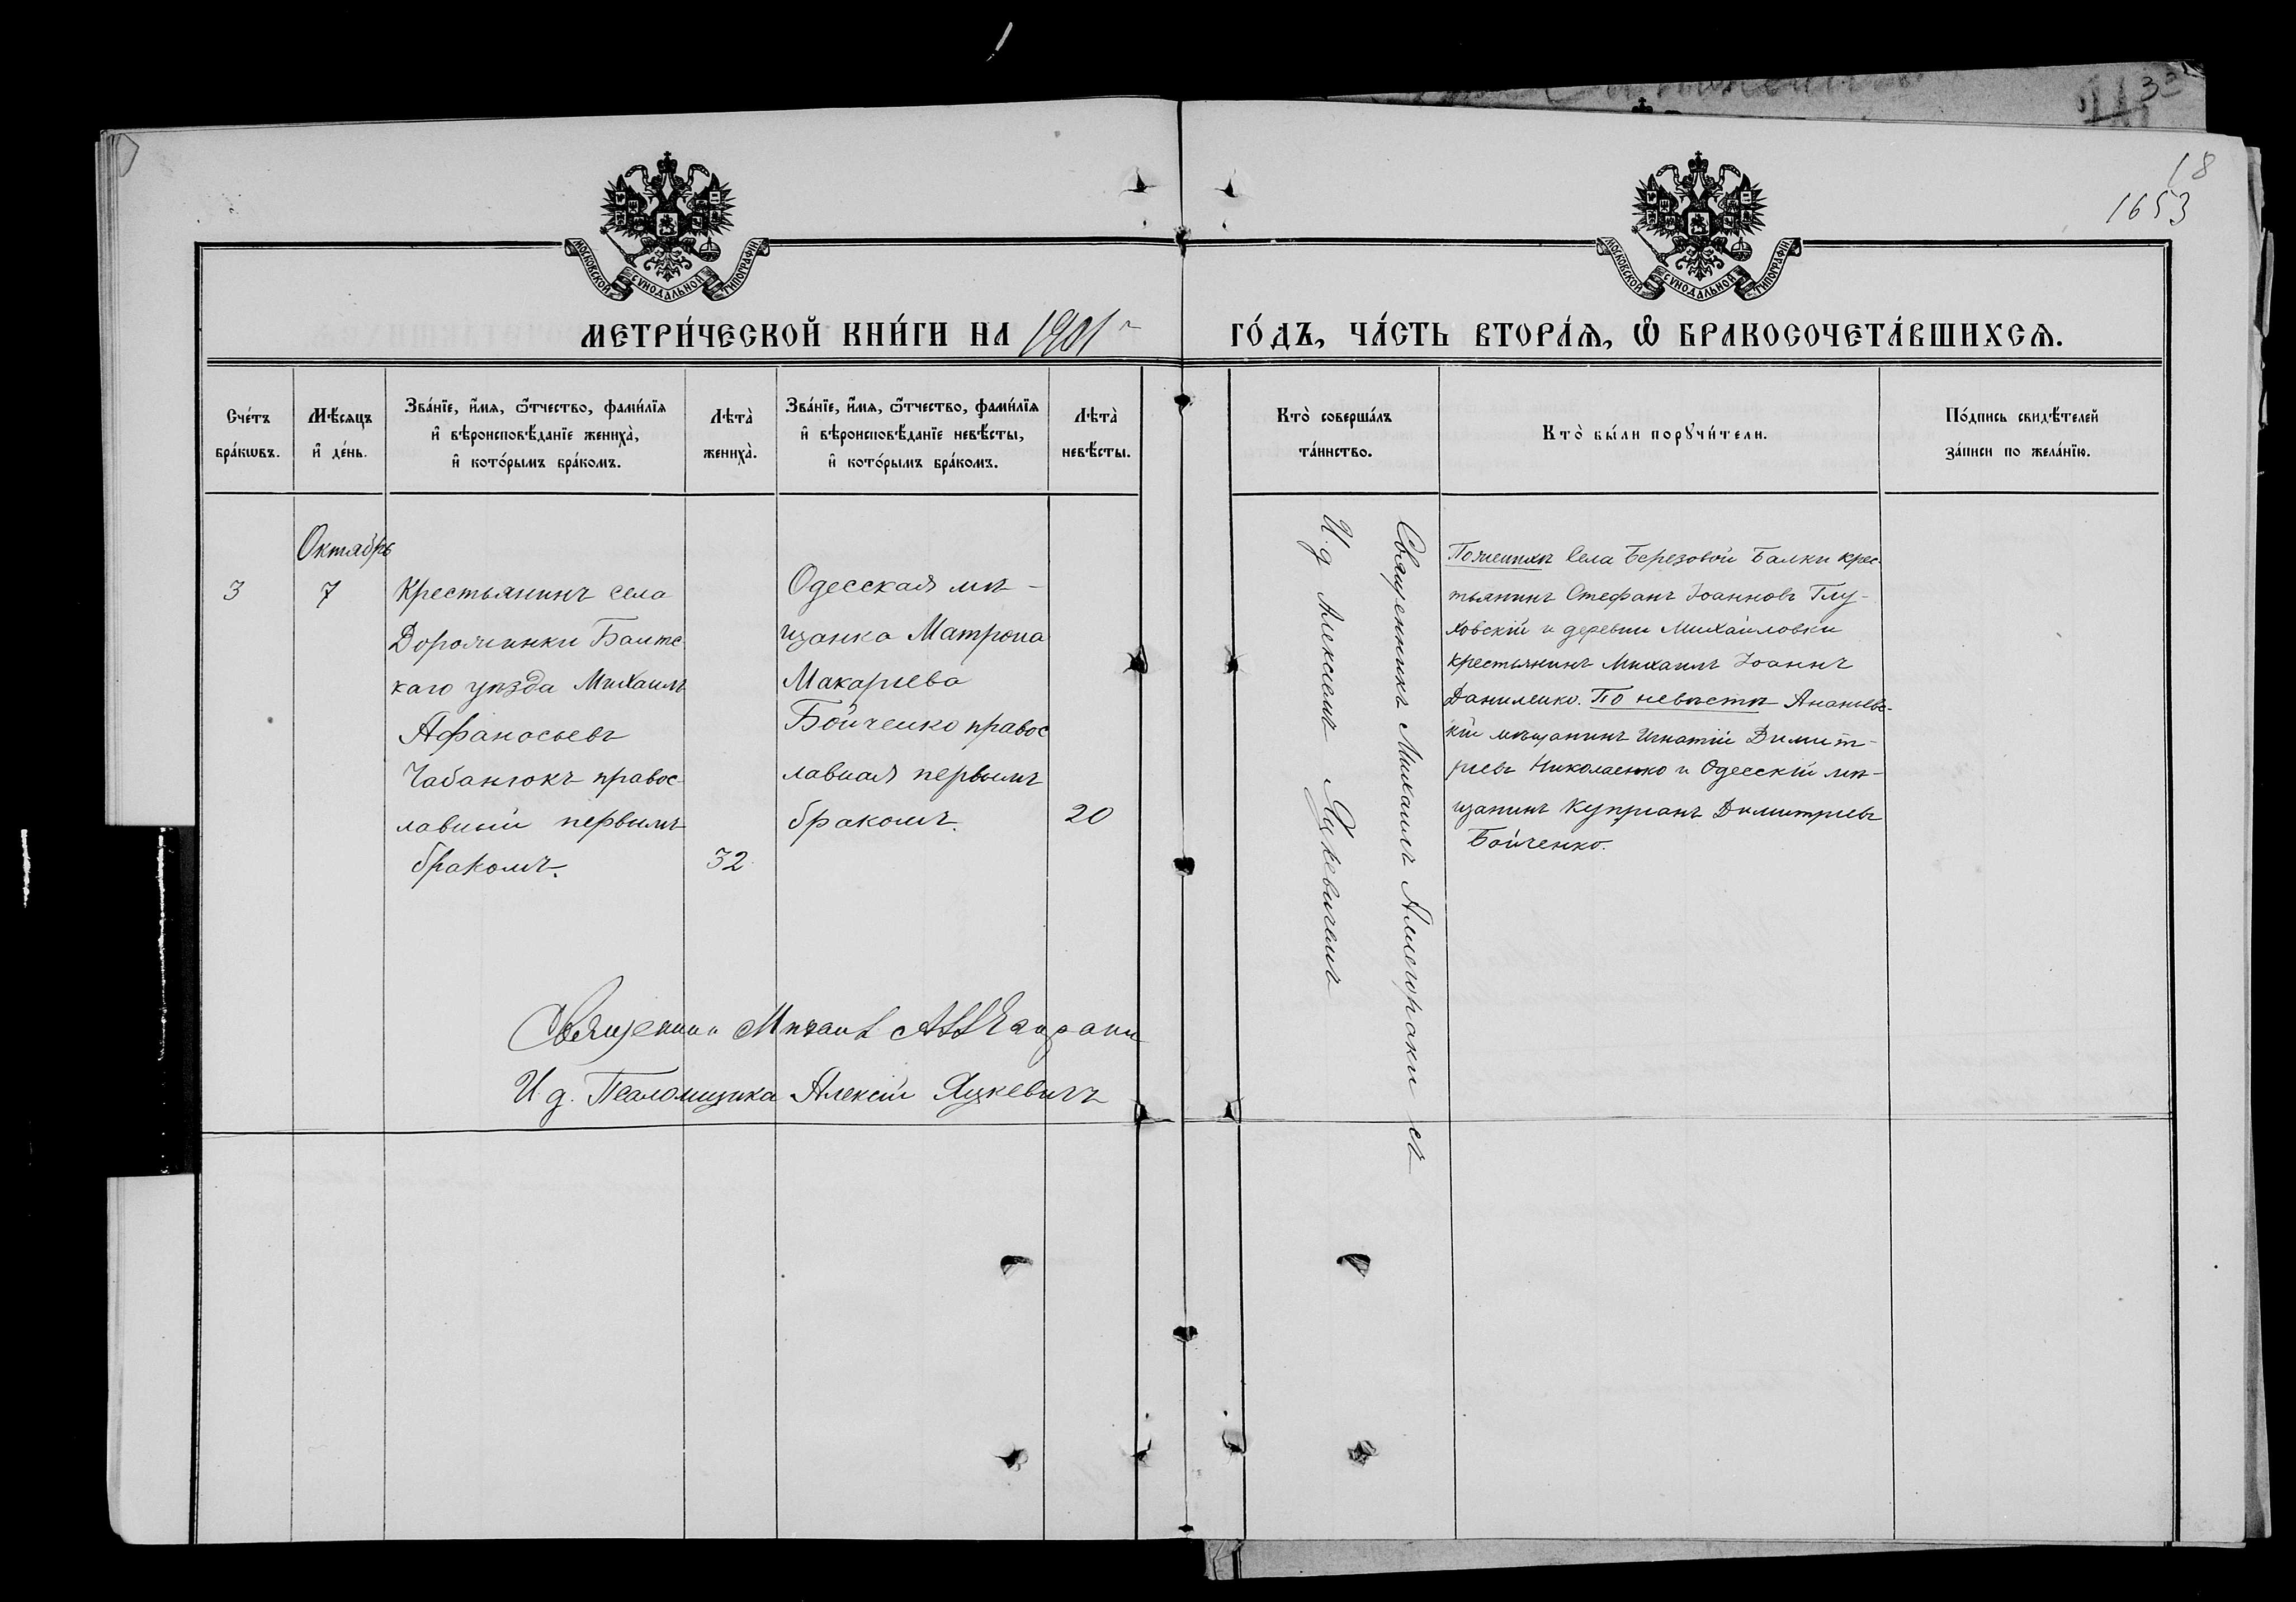 18
1653
МОСКОВСКОЙ СѴНОДАЛЬНОЙ ТИПОГРАФІИ
МОСКОВСКОЙ СѴНОДАЛЬНОЙ ТИПОГРАФІИ
МЕТРИ́ЧЕСКОЙ КНИ́ГИ НА 1901 г
ГО́ДЪ, ЧА́СТЬ ВТОРА́Ѧ, Ѽ БРАКОСОЧЕТА́ВШИХСѦ.
Сче́тъ
бра́кѡвъ.
Мѣ́сяцъ
и҆ де́нь.
Зва́нїе, и҆́мѧ, ѻ҆́тчество, фами́лїѧ
и҆ вѣроисповѣ́данїе жениха̀,
и҆ кото́рымъ бра́комъ.
Лѣта̀
жениха̀.
Зва́нїе, и҆́мѧ, ѻ҆́тчество, фами́лїѧ
и҆ вѣроисповѣ́данїе невѣ́сты,
и҆ кото́рымъ бра́комъ.
Лѣта̀
невѣ́сты.
Кто̀ соверша́лъ
та́инство.
Кто̀ бы́ли порꙋчи́тели.
По́дпись свидѣ́телей
за́писи по жела́нїю.
Октябрь
3
7
Крестьянинъ села
Дорожинки Балтс
каго уѣзда Михаилъ
Афанасьевъ
Чабанюкъ правос
лавный первымъ
бракомъ.
32
Одесская мѣ-
щанка Матрона
Макарьева
Бойченко правос
лавная первымъ
бракомъ.
20
Священникъ Михаилъ Аллегораки съ
И. д Алексѣемъ Яцкевичемъ
По женихѣ Села Березовой Балки крес
тьянинъ Стефанъ Іоанновъ Глу-
ховскій и деревни Михайловки
крестьянинъ Михаилъ Іоаннъ
Даниленко. По невѣстѣ Ананьевс-
кій мѣщанинъ Игнатій Димит-
ріевъ Николаенко и Одесскій мѣ-
щанинъ Купріанъ Димитріевъ
Бойченко.
Священникъ Михаилъ Аллегораки
И д. Псаломщика Алексій Яцкевичъ